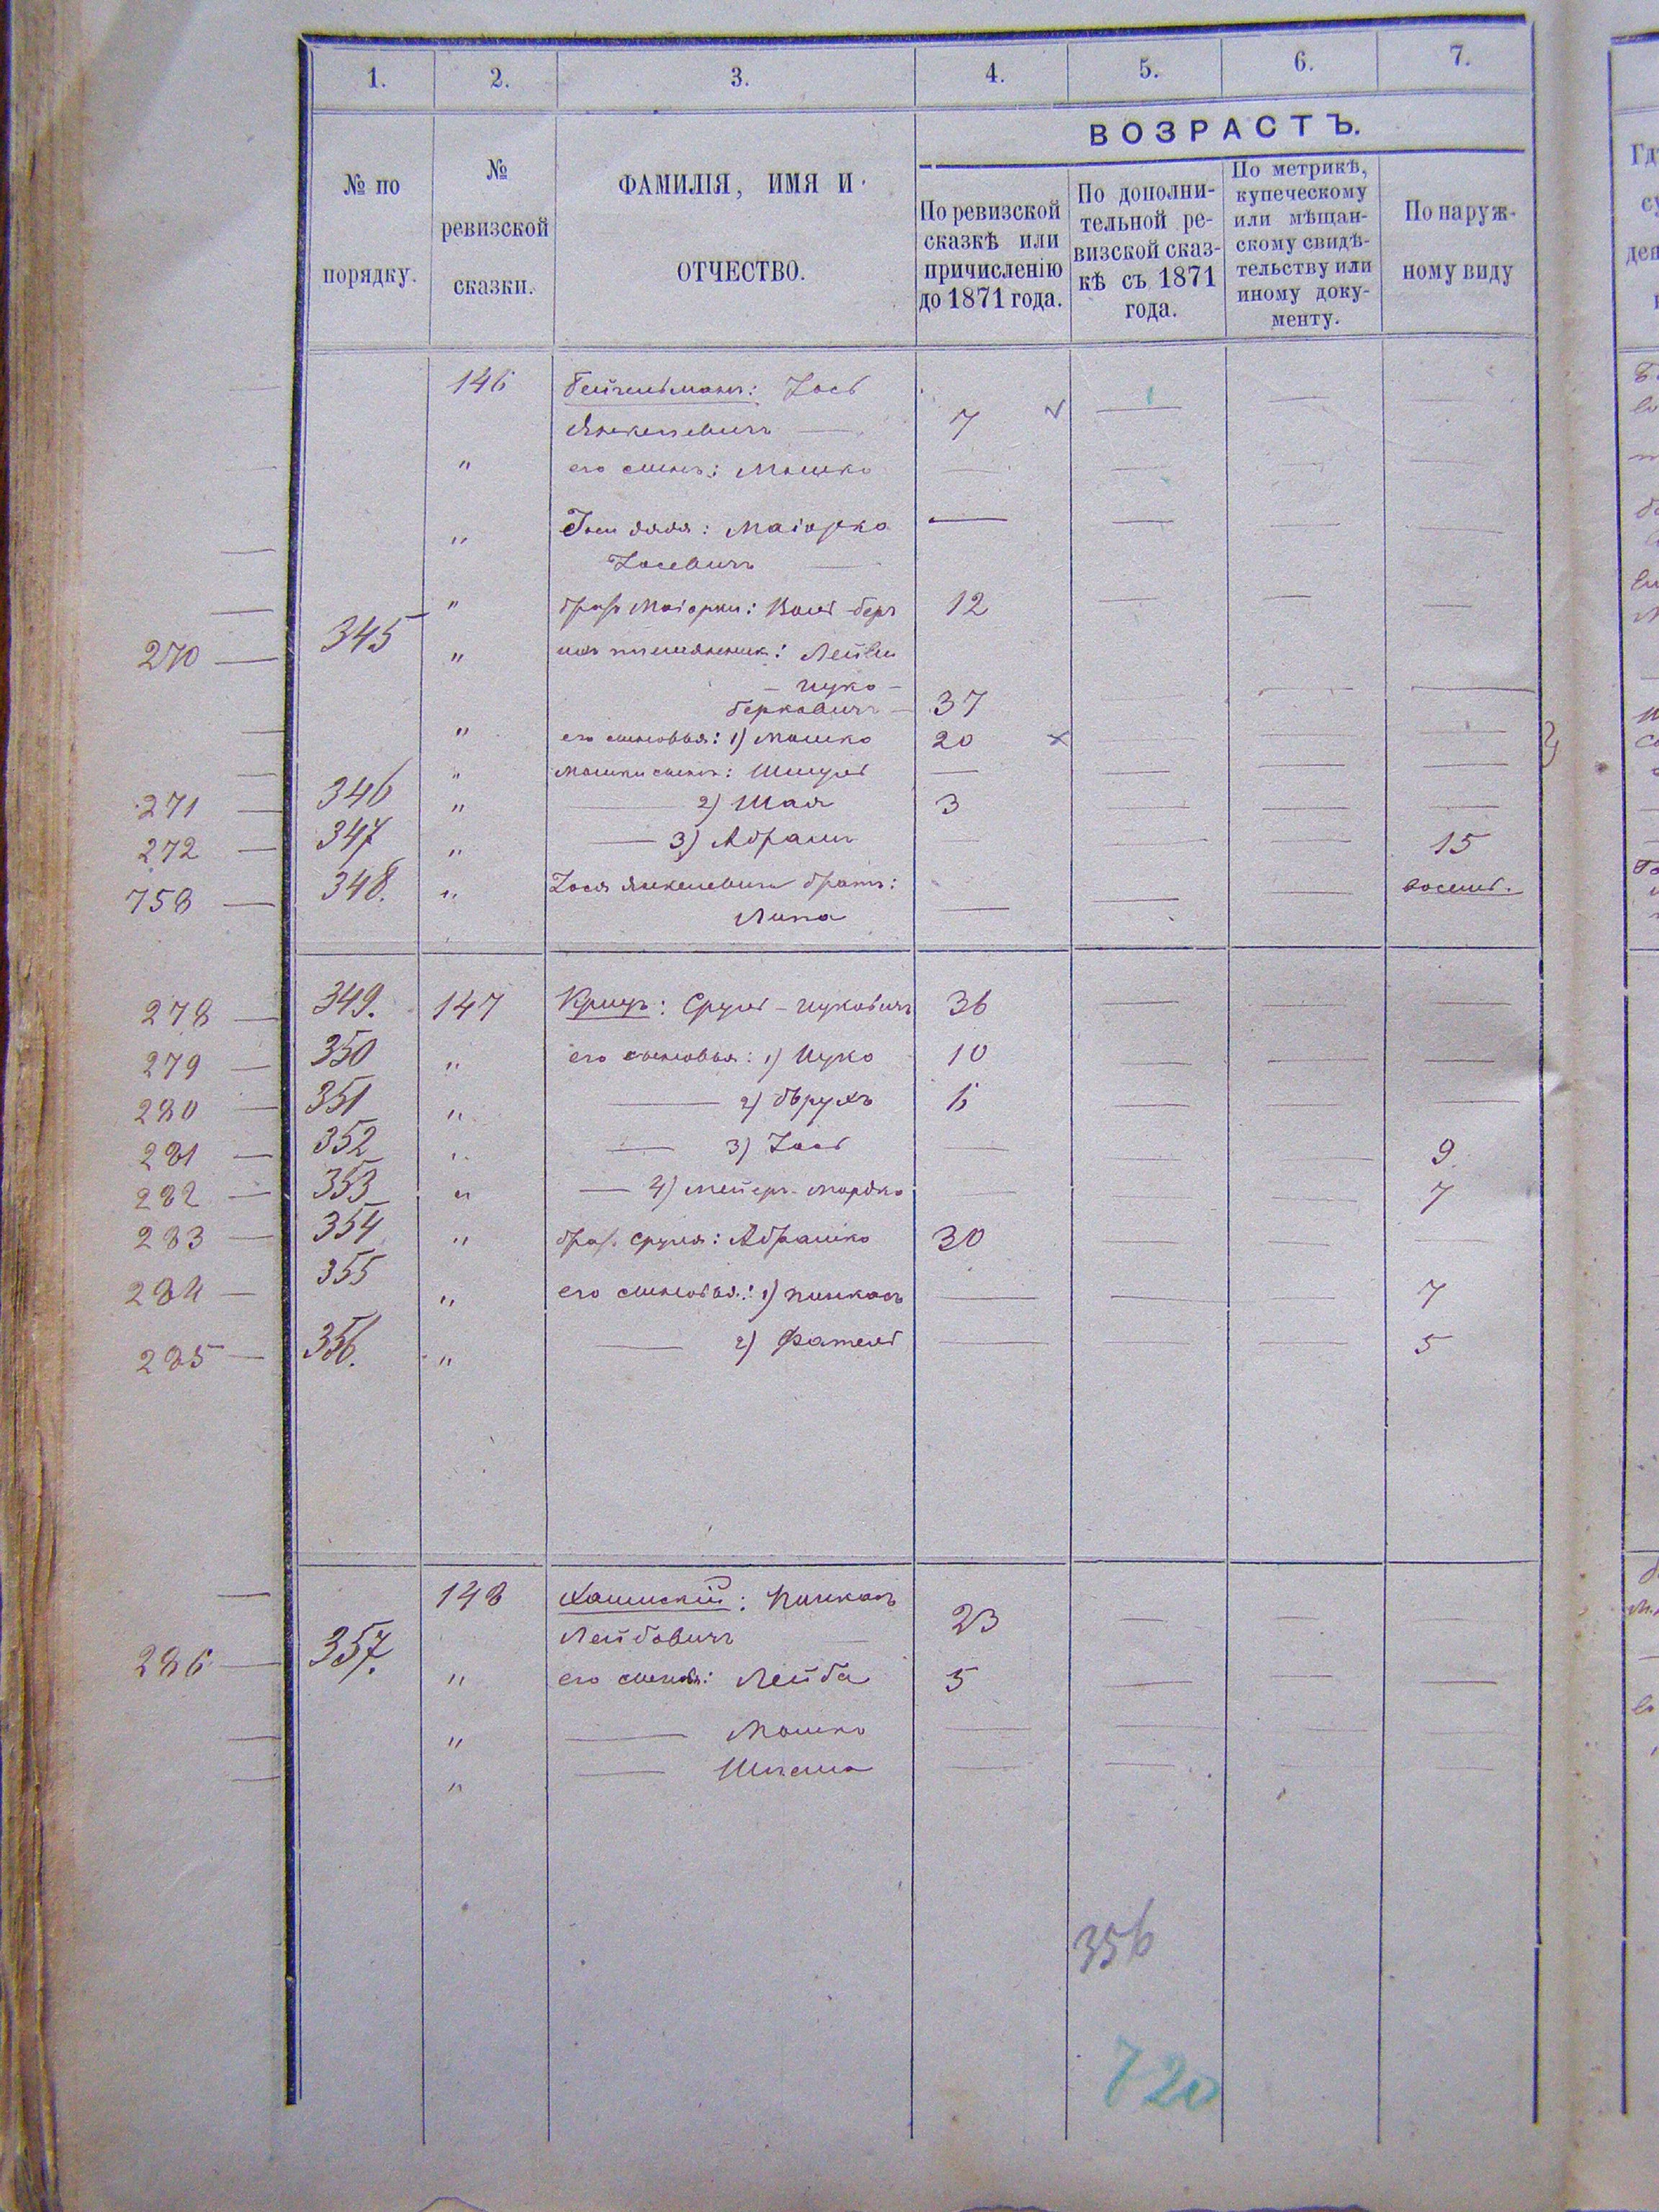 1. 2. 3. 4. 5. 6. 7.
ВОЗРАСТЪ.
№ по порядку.
№ ревизской сказки.
ФАМИЛІЯ, ИМЯ И ОТЧЕСТВО.
По ревизской сказкѣ или причисленію до 1871 года.
По дополнительной ревизской сказкѣ съ 1871 года.
По метрикѣ, купеческому или мѣщанскому свидѣтельству или иному документу.
По наружному виду
146 Іось
Янкелевичъ — 7
" его сынъ: Мошко — — — —
" дядя: Маіорко — — — —
Іосевичъ —
" Маіорки: Волѣ-беръ 12 — — —
270 — 345 " ихъ племянник: Лейви
- Ицко -
Берковичъ — 37 — — —
" его сыновья: 1) Мошко 20 — — —
" Мошки сынъ: Шмуль — — — —
271 — 346 " — 2) Шая 3 — — —
272 — 347 " — 3) Абрамъ — — — 15
758 — 348. " Іося Янкелевича братъ:
Липа — — —
278 — 349. 147 Сруль-Ицковичъ 36 — — —
279 — 350 " его сыновья: 1) Ицко 10 — — —
280 — 351 " — 2) Борухъ 6 — — —
281 — 352 " — 3) Іось — — — 9
282 — 353 " — 4) Мейеръ-Мордко — — — 7
283 — 354 " брат. Сруля: Абрамко 30 — — —
284 — 355 " его сыновья: 1) Пинкасъ — — — 7
285 — 356. " — 2) Фатель — — — 5
148 Хашискій: Пинкасъ
Лейбовичъ — 23 — — —
286 — 357. " его сыновья: Лейба 5 — — —
" — Мошко — — — —
" — Шлема — — — —
356
720